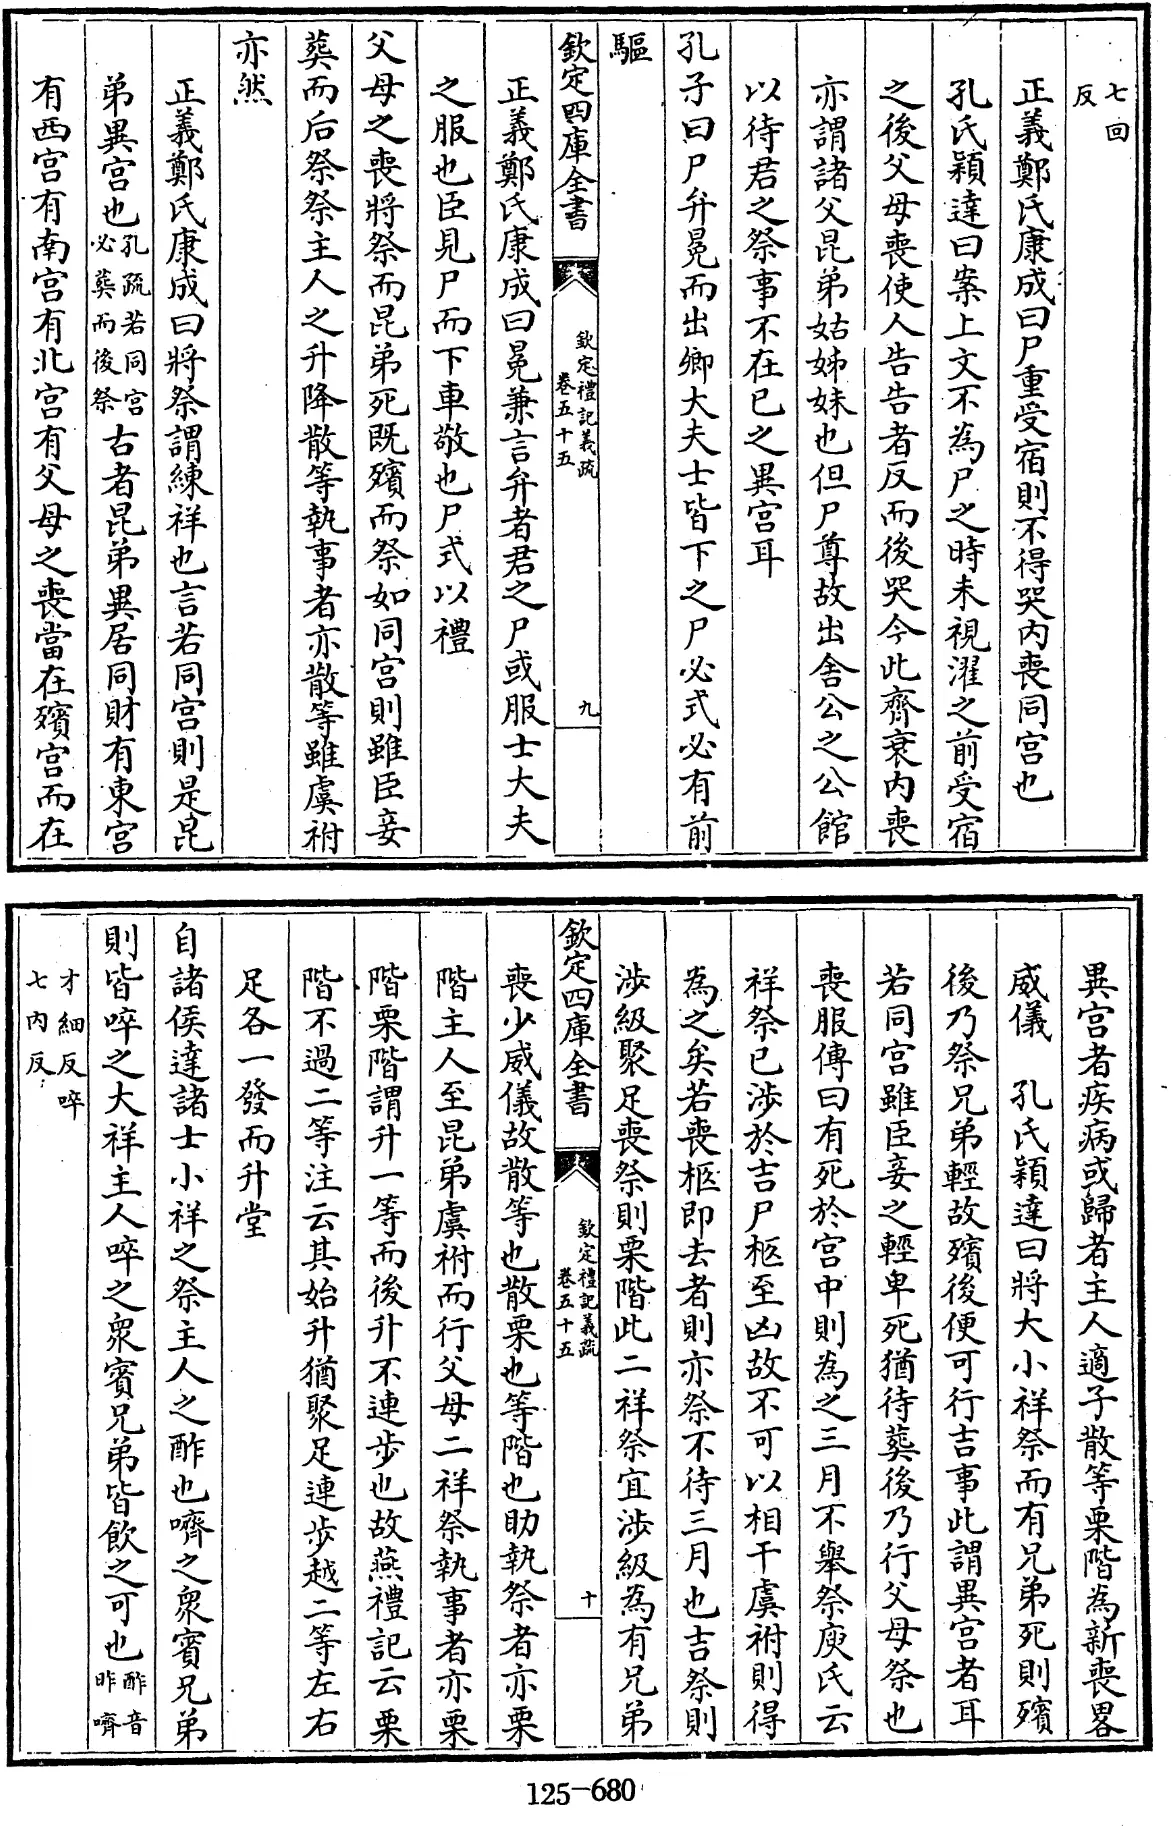 七回
反
正義鄭氏康成曰尸重受宿則不得哭内喪同宫也
孔氏穎達曰案上文不為尸之時未視濯之前受宿
之後父母喪使人告告者反而後哭今此齊衰内喪
亦謂諸父昆弟姑姊妹也但尸尊故出舍公之公館
以待君之祭事不在已之異宫耳
孔子曰尸弁冕而出卿大夫士皆下之尸必式必有前
驅
欽定四庫全書
欽定禮記義疏
卷五十五
九
正義鄭氏康成曰冕兼言弁者君之尸或服士大夫
之服也臣見尸而下車敬也尸式以禮
父母之喪將祭而昆弟死既殯而祭如同宫則雖臣妾
葬而后祭祭主人之升降散等執事者亦散等雖虞祔
亦然
正義鄭氏康成曰將祭謂練祥也言若同宫則是昆
弟異宫也孔疏若同宫必葬而後祭古者昆弟異居同財有東宫
有西宫有南宫有北宫有父母之喪當在殯宫而在
異宫者疾病或歸者主人適子散等栗階為新喪畧
威儀　孔氏穎達曰將大小祥祭而有兄弟死則殯
後乃祭兄弟輕故殯後便可行吉事此謂異宫者耳
若同宫雖臣妾之輕卑死猶待葬後乃行父母祭也
喪服傳曰有死於宫中則為之三月不舉祭庾氏云
祥祭已涉於吉尸柩至凶故不可以相干虞祔則得
為之矣若喪柩即去者則亦祭不待三月也吉祭則
涉級聚足喪祭則栗階此二祥祭宜涉級為有兄弟
欽定四庫全書
欽定禮記義疏
卷五十五
十
喪少威儀故散等也散栗也等階也助執祭者亦栗
階主人至昆弟虞祔而行父母二祥祭執事者亦栗
階栗階謂升一等而後升不連步也故燕禮記云栗
階不過二等注云其始升猶聚足連步越二等左右
足各一發而升堂
自諸侯達諸士小祥之祭主人之酢也嚌之衆賓兄弟
則皆啐之大祥主人啐之衆賓兄弟皆飲之可也酢音昨嚌
才細反啐
七内反
125-680